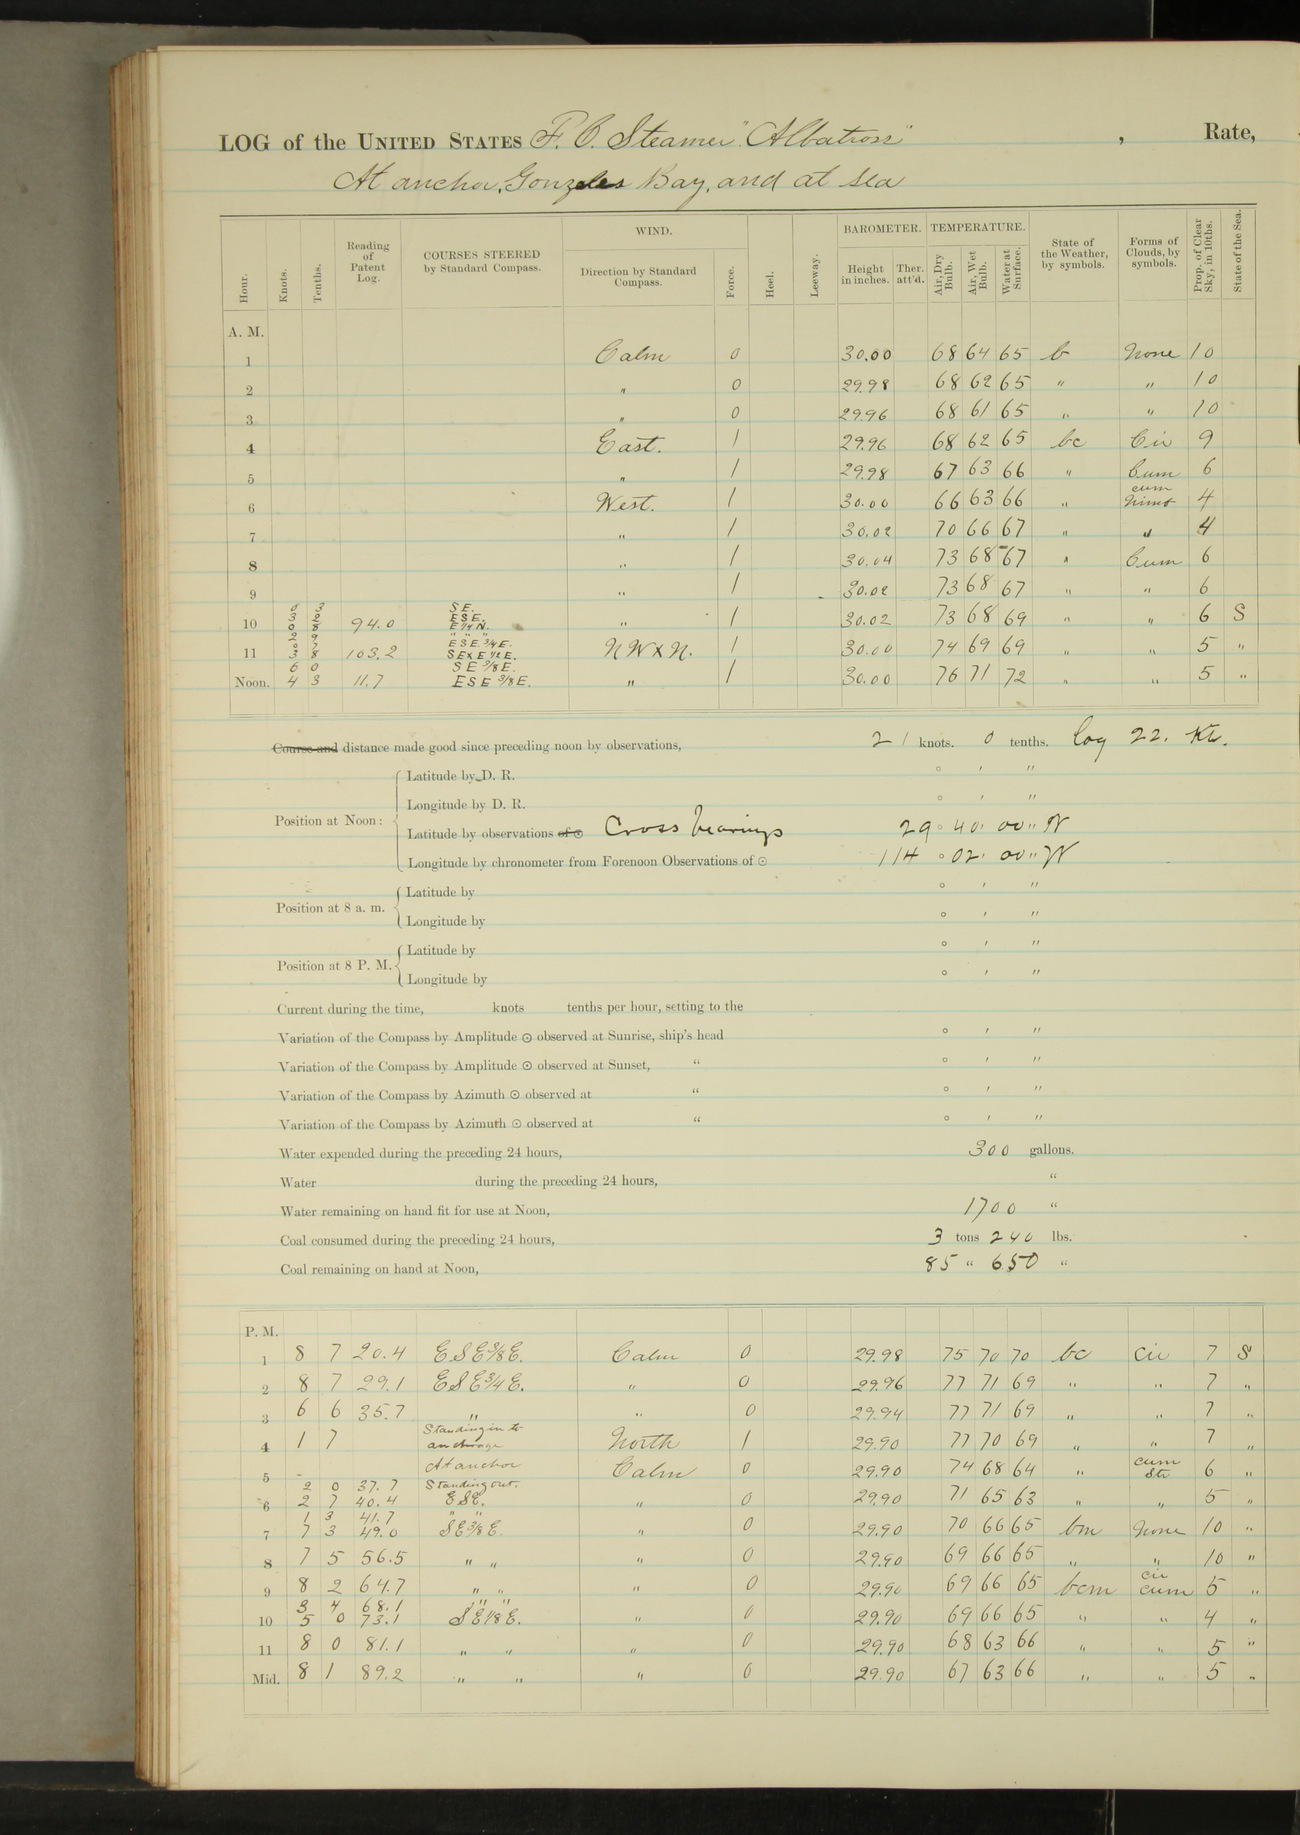 LOG of the UNITED STATES F. C. Steamer "Albatross" , Rate,
At anchor, Gonzales Bay, and at sea
Hour. Knots. Tenths. Reading of Patent Log. COURSES STEERED by Standard Compass. WIND. Direction by Standard Compass. Force. Heel. Leeway. BAROMETER. Height in inches. Ther. att'd. TEMPERATURE. Air, Dry Bulb. Air, Wet Bulb. Water at Surface. State of the Weather, by symbols. Forms of Clouds, by symbols. Prop. of Clear Sky, in 10ths. State of the Sea.
A. M.
1 Calm 0 30.00 68 64 65 b None 10
2 " 0 29.98 68 62 65 " " 10
3 " 0 29.96 68 61 65 " " 10
4 East. 1 29.96 68 62 65 bc Cir 9
5 " 1 29.98 67 63 66 " Cum 6
6 West. 1 30.00 66 63 66 " cum nimb 4
7 " 1 30.02 70 66 67 " " 4
8 " 1 30.04 73 68 67 " Cum 6
9 " 1 30.02 73 68 67 " " 6
0 3 SE.
3 2 ESE.
10 0 8 94.0 E 1/4 N. " 1 30.02 73 68 69 " " 6 S
2 9 " " "
0 7 ESE 3/4 E.
11 3 8 103.2 SE x E 1/2 E. NW x N. 1 30.00 74 69 69 " " 5 "
6 0 SE 3/8 E.
Noon. 4 3 11.7 ESE 3/8 E. " 1 30.00 76 71 72 " " 5 "
Course and distance made good since preceding noon by observations, 21 knots. 0 tenths. log 22. Kts.
Latitude by D. R. ° ′ ″
Longitude by D. R. ° ′ ″
Position at Noon: Latitude by observations of ☉ Cross bearings 29° 40′ 00″ N
Longitude by chronometer from Forenoon Observations of ☉ 114° 02′ 00″ W
Position at 8 a. m. Latitude by ° ′ ″
Longitude by ° ′ ″
Position at 8 P. M. Latitude by ° ′ ″
Longitude by ° ′ ″
Current during the time, knots tenths per hour, setting to the
Variation of the Compass by Amplitude ☉ observed at Sunrise, ship's head ° ′ ″
Variation of the Compass by Amplitude ☉ observed at Sunset, " ° ′ ″
Variation of the Compass by Azimuth ☉ observed at " ° ′ ″
Variation of the Compass by Azimuth ☉ observed at " ° ′ ″
Water expended during the preceding 24 hours, 300 gallons.
Water during the preceding 24 hours, "
Water remaining on hand fit for use at Noon, 1700 "
Coal consumed during the preceding 24 hours, 3 tons 240 lbs.
Coal remaining on hand at Noon, 85 " 650 "
P. M.
1 8 7 20.4 ESE 3/8 E. Calm 0 29.98 75 70 70 bc Cir 7 S
2 8 7 29.1 ESE 3/4 E. " 0 29.96 77 71 69 " " 7 "
3 6 6 35.7 " " 0 29.94 77 71 69 " " 7 "
4 1 7 Standing in to anchorage North 1 29.90 77 70 69 " " 7 "
5 At anchor Calm 0 29.90 74 68 64 " cum Str 6 "
2 0 37.7 Standing out.
6 2 7 40.4 ESE. " 0 29.90 71 65 63 " " 5 "
1 3 41.7 " "
7 7 3 49.0 SE 3/8 E. " 0 29.90 70 66 65 bm None 10 "
8 7 5 56.5 " " " 0 29.90 69 66 65 " " 10 "
9 8 2 64.7 " " " 0 29.90 69 66 65 bcm cir cum 5 "
3 4 68.1 " " "
10 5 0 73.1 SE 1/8 E. " 0 29.90 69 66 65 " " 4 "
11 8 0 81.1 " " " 0 29.90 68 63 66 " " 5 "
Mid. 8 1 89.2 " " " 0 29.90 67 63 66 " " 5 "